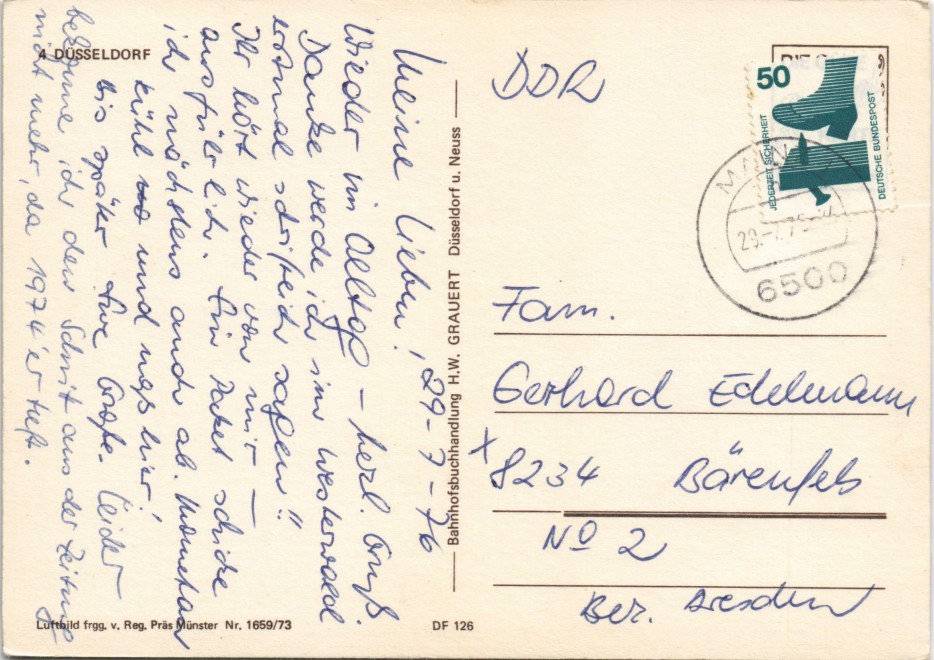 4 DÜSSELDORF
Meine Lieben! 29-7-76
Wieder im Alltag – herzl. Gruß.
Danke werde ich im Westerwald
erstmal schriftlich sagen!!
Ihr hört wieder von mir –
ausführlich. Ein Paket schicke
ich nächstens auch ab. Momentan
kühl und naß hier!
bis später Eure Grete. Leider
bekomme ich den Schnitt aus der Zeitung
nicht mehr, da 1974'er Heft.
Luftbild frgg. v. Reg. Präs Münster Nr. 1659/73
DF 126
Bahnhofsbuchhandlung H.W. GRAUERT Düsseldorf u. Neuss
DDR
50
JEDERZEIT SICHERHEIT
DEUTSCHE BUNDESPOST
MAINZ
6500
Fam.
Gerhard Edelmann
x 8234 Bärenfels
No 2
Bez. Dresden